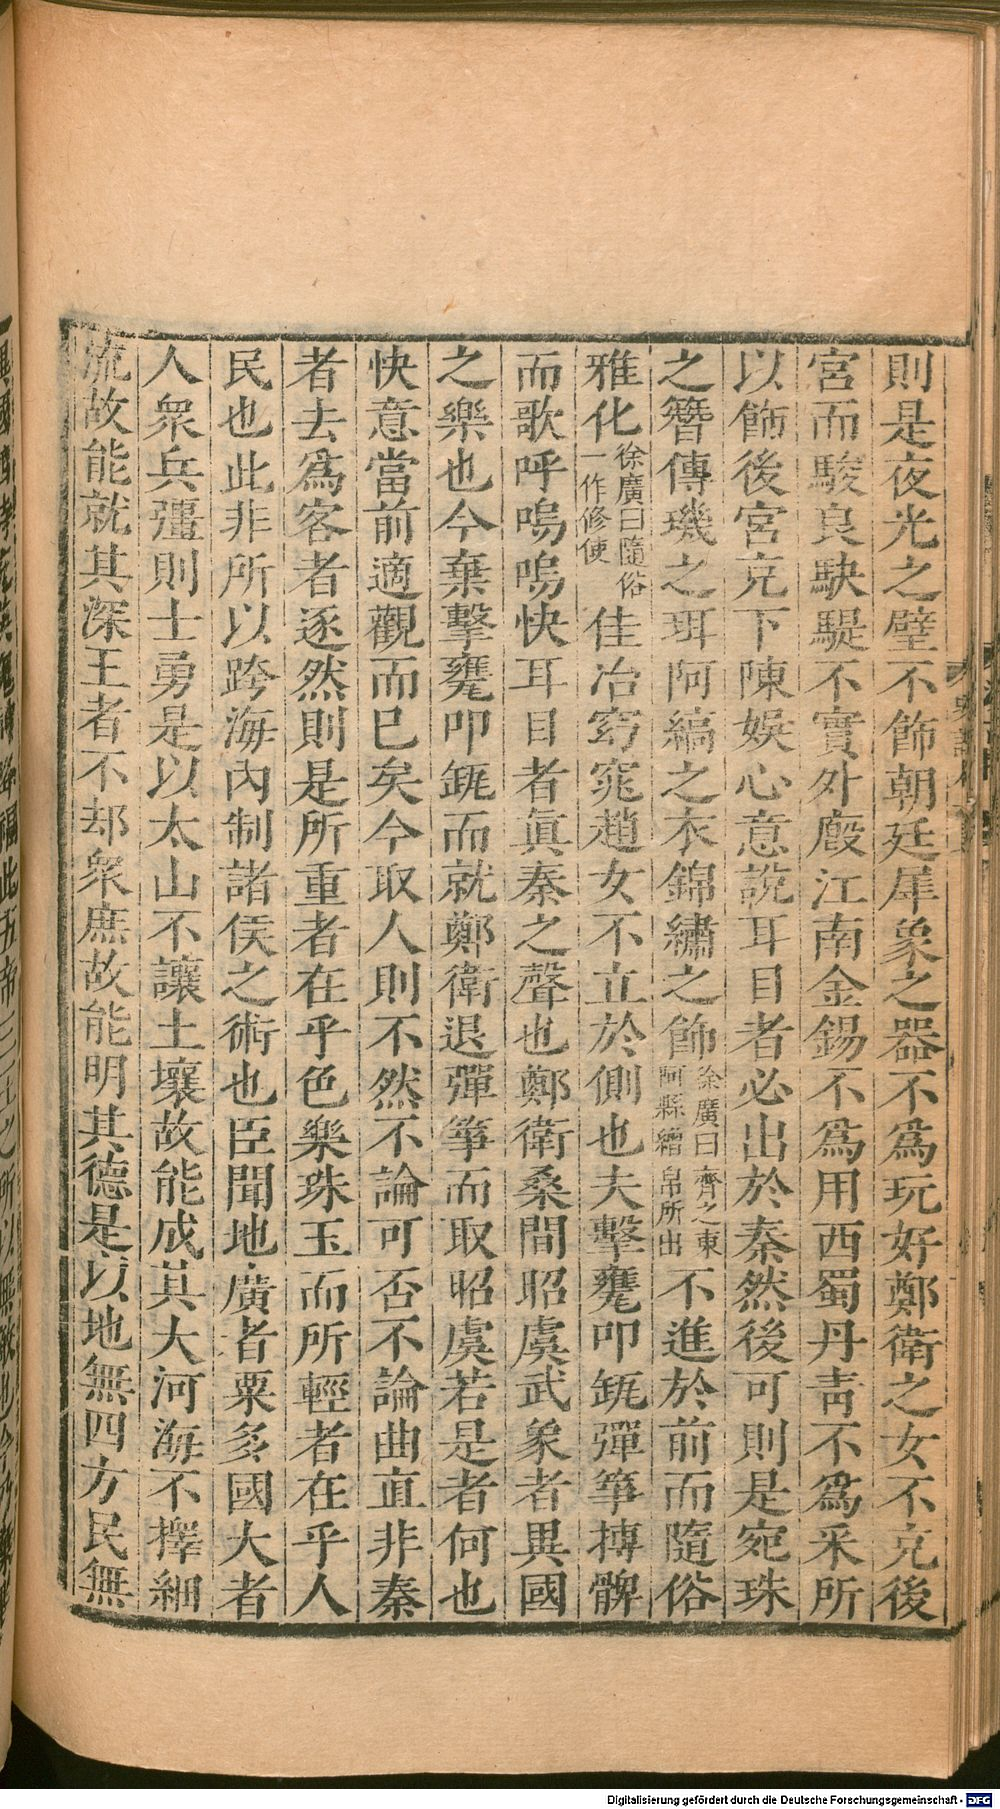 則是夜光之璧不飾朝廷犀象之器不爲玩好鄭衛之女不充後
宮而駿良駃騠不實外廄江南金錫不爲用西蜀丹青不爲采所
以飾後宮充下陳娛心意說耳目者必出於秦然後可則是宛珠
之簪傅璣之珥阿縞之衣錦繡之飾徐廣曰齊之東阿縣繒帛所出不進於前而隨俗
雅化徐廣曰隨俗一作修使佳冶窈窕趙女不立於側也夫擊甕叩缻彈箏搏髀
而歌呼嗚嗚快耳目者眞秦之聲也鄭衛桑間昭虞武象者異國
之樂也今棄擊甕叩缻而就鄭衛退彈箏而取昭虞若是者何也
快意當前適觀而已矣今取人則不然不論可否不論曲直非秦
者去爲客者逐然則是所重者在乎色樂珠玉而所輕者在乎人
民也此非所以跨海內制諸侯之術也臣聞地廣者粟多國大者
人衆兵彊則士勇是以太山不讓土壤故能成其大河海不擇細
流故能就其深王者不却衆庶故能明其德是以地無四方民無
Digitalisierung gefördert durch die Deutsche Forschungsgemeinschaft - DFG